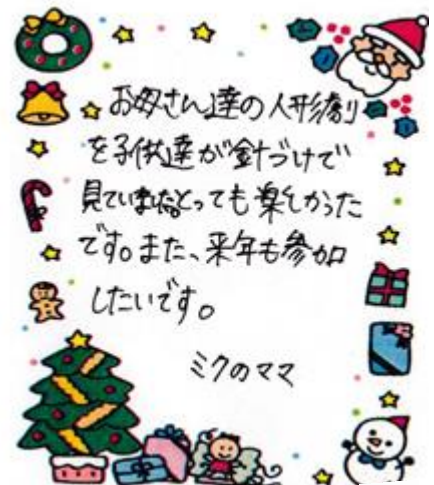 お母さん達の人形劇
を子供達が釘づけで
見ていました。とっても楽しかった
です。また、来年も参加
したいです。
ミクのママ